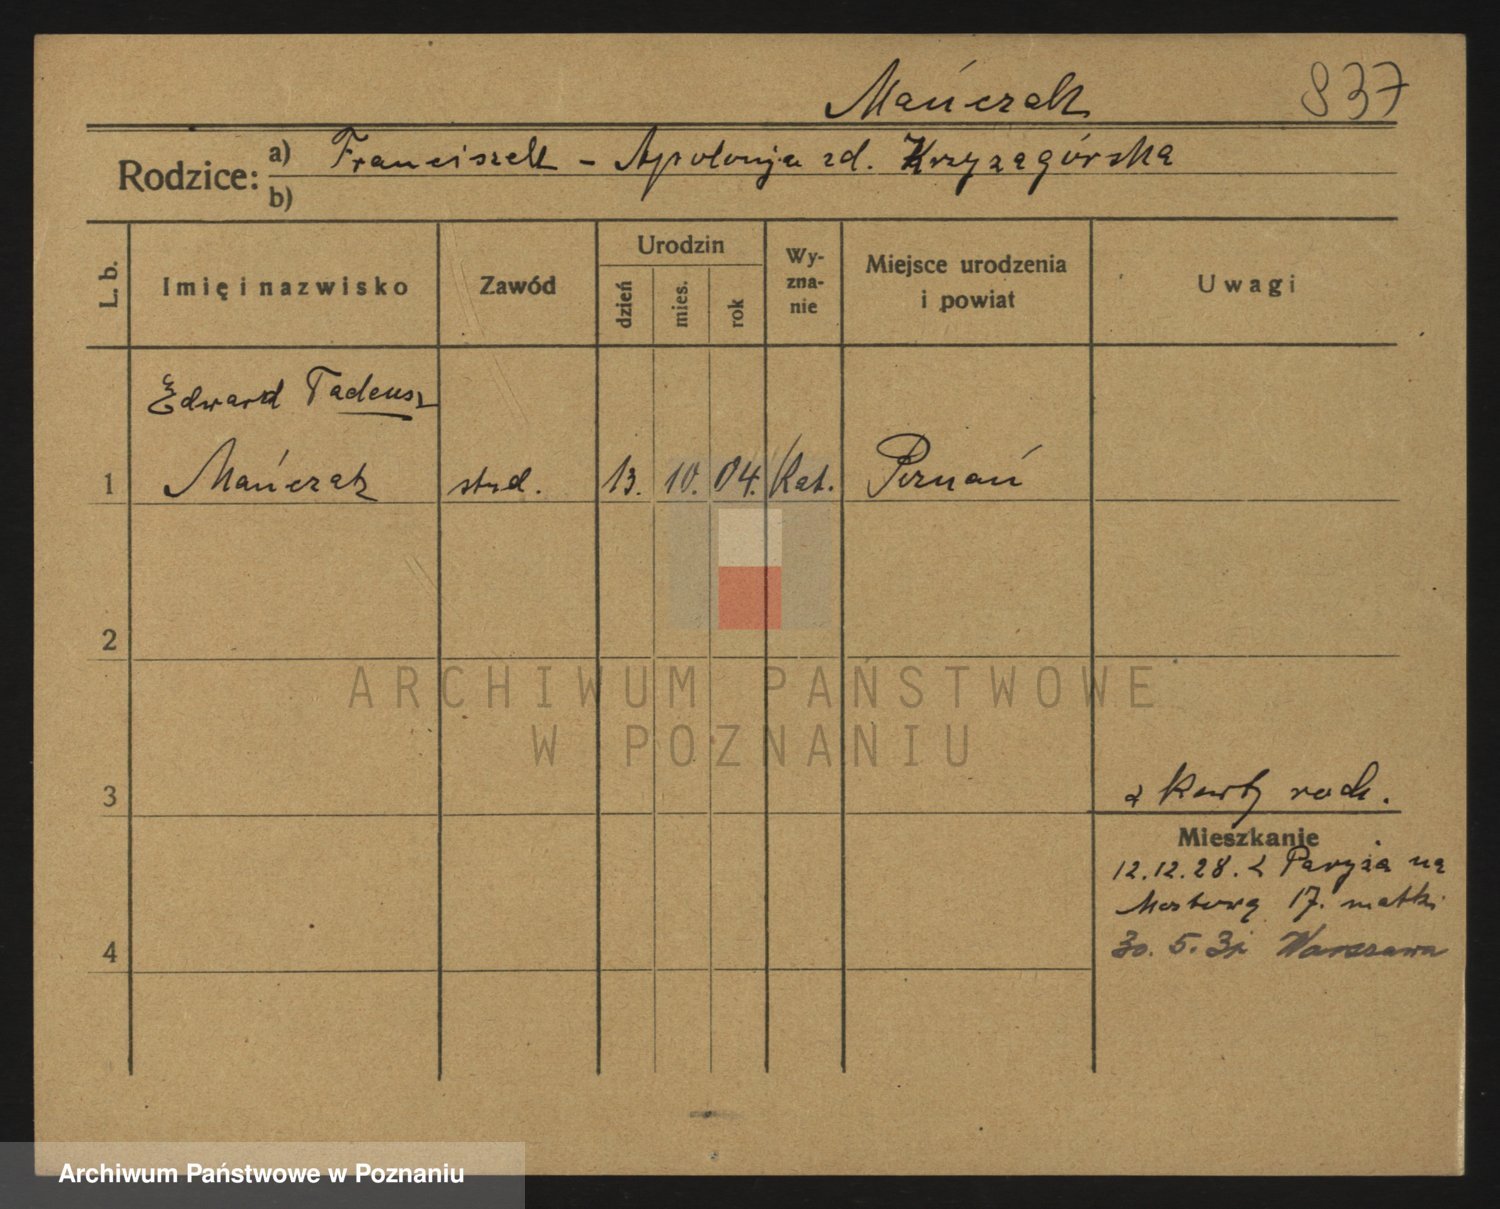 Mańczak 837
Rodzice: a) Franciszek - Apolonja zd. Krzyżagórska
b)
L. b. Imię i nazwisko Zawód Urodzin dzień mies. rok Wyznanie Miejsce urodzenia i powiat Uwagi
Edward Tadeusz
1 Mańczak stud. 13. 10. 04. Kat. Poznań
2
3
z karty rodz.
Mieszkanie
12.12.28. z Paryża na
Mostową 17. matki
30. 5. 31 Warszawa
4
ARCHIWUM PAŃSTWOWE
W POZNANIU
Archiwum Państwowe w Poznaniu